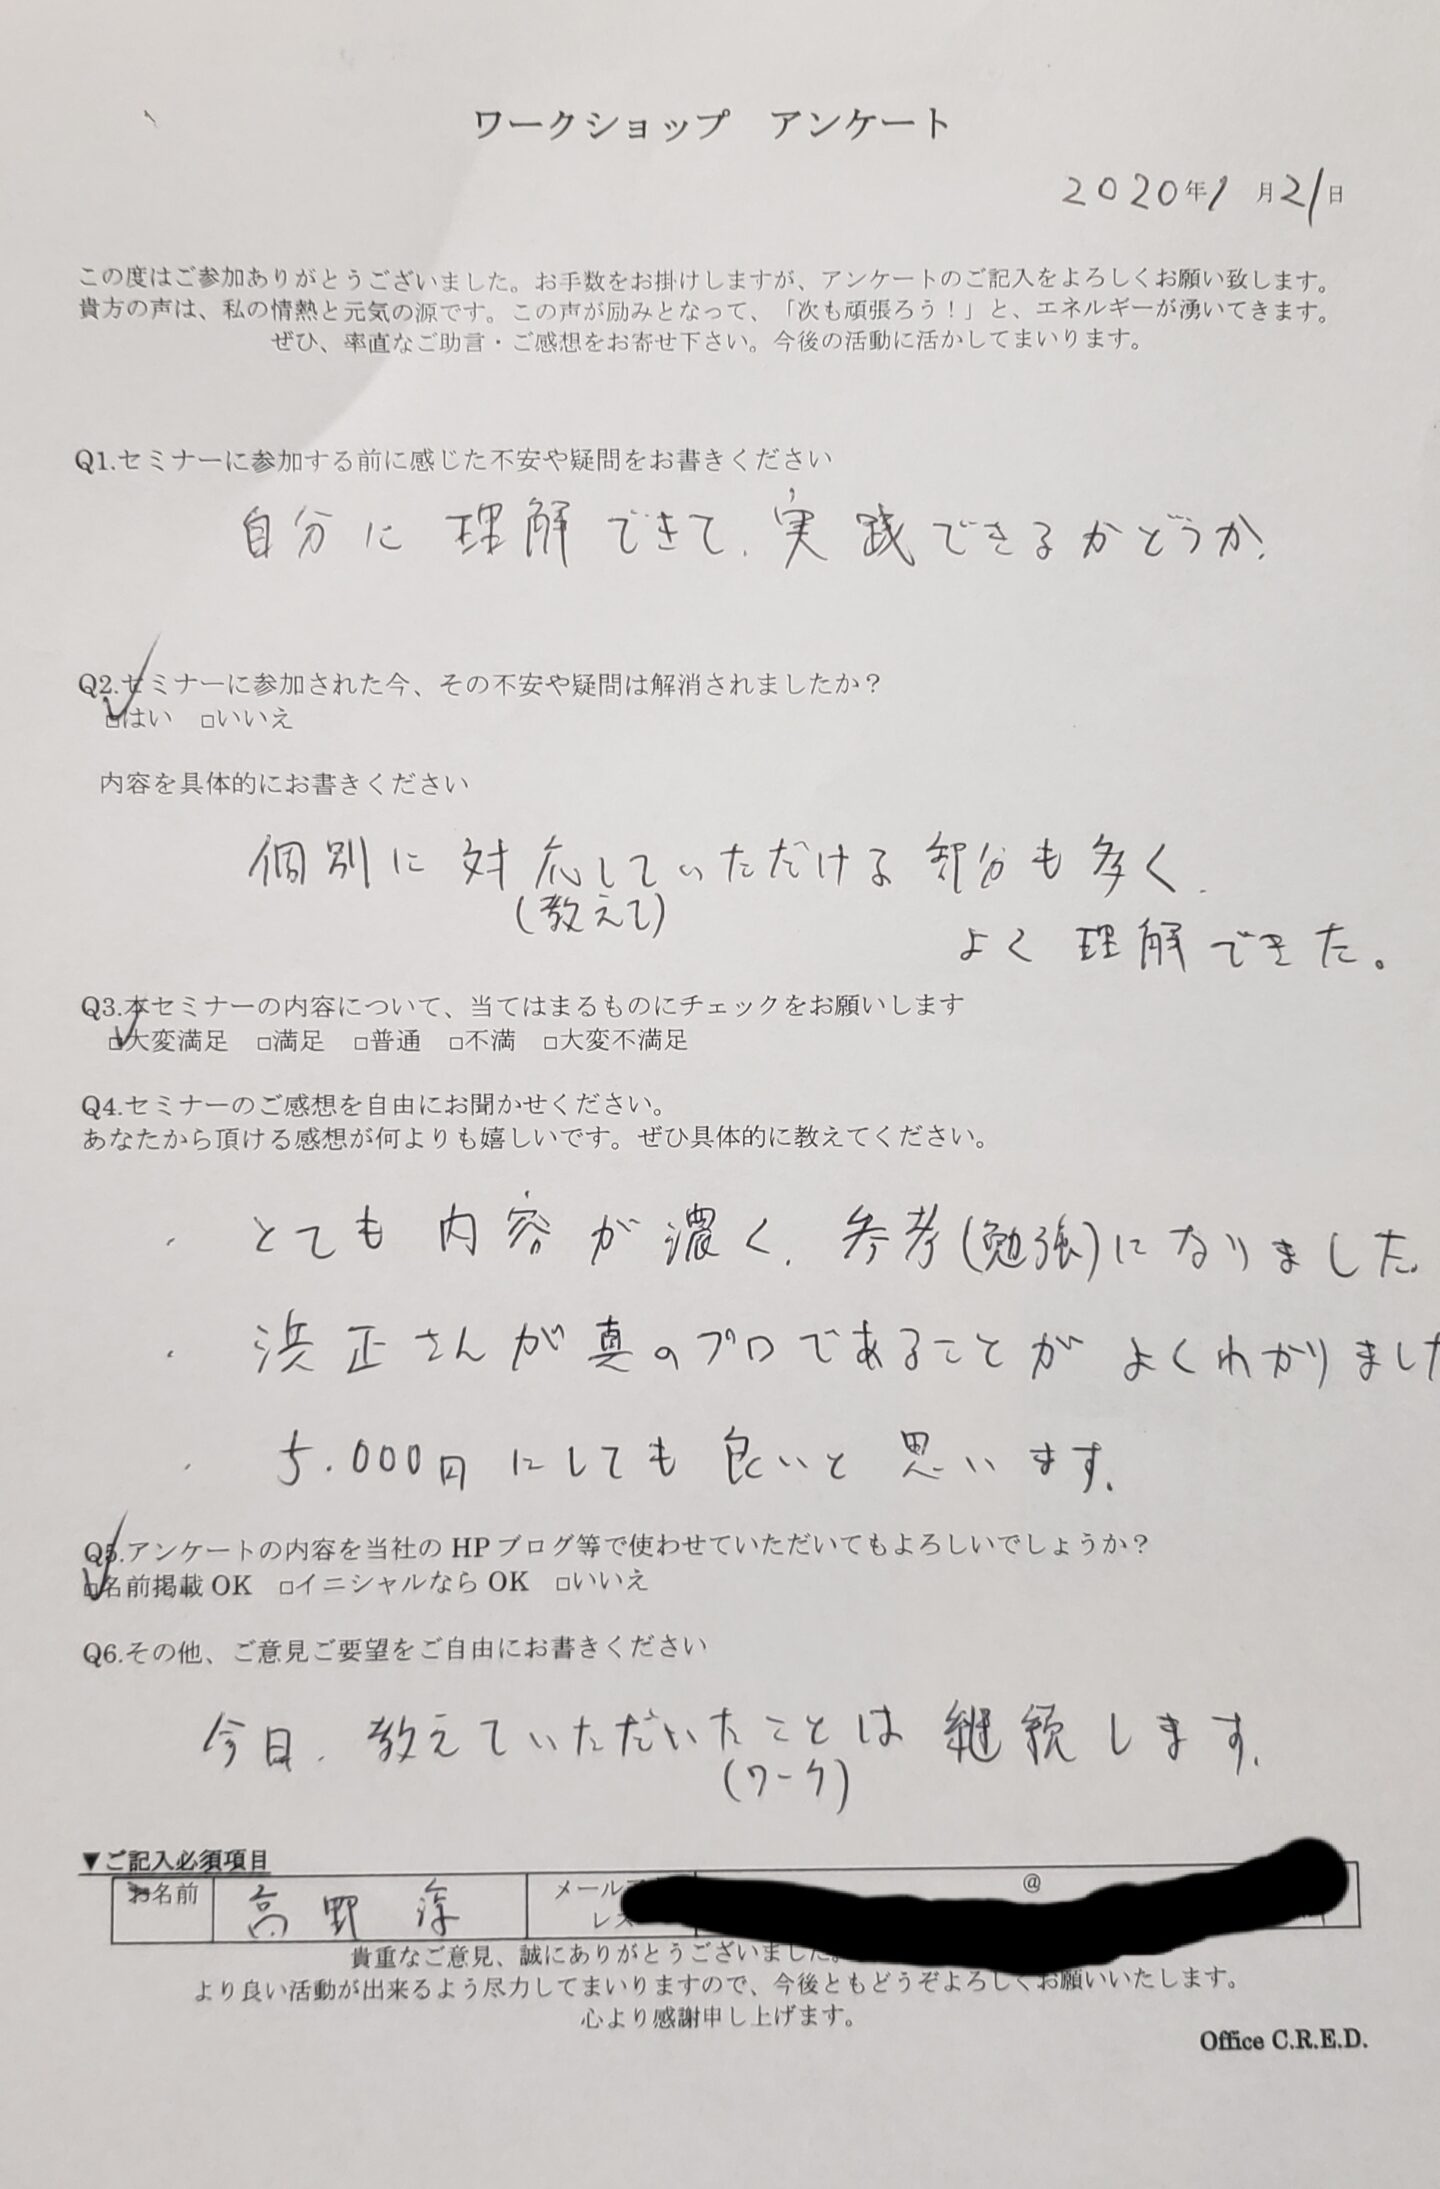 ワークショップ　アンケート
2020年1月21日
この度はご参加ありがとうございました。お手数をお掛けしますが、アンケートのご記入をよろしくお願い致します。
貴方の声は、私の情熱と元気の源です。この声が励みとなって、「次も頑張ろう！」と、エネルギーが湧いてきます。
ぜひ、率直なご助言・ご感想をお寄せ下さい。今後の活動に活かしてまいります。
Q1.セミナーに参加する前に感じた不安や疑問をお書きください
自分に理解できて、実践できるかどうか。
Q2.セミナーに参加された今、その不安や疑問は解消されましたか？
□はい　□いいえ
内容を具体的にお書きください
個別に対応していただける部分も多く、
(教えて)
よく理解できた。
Q3.本セミナーの内容について、当てはまるものにチェックをお願いします
□大変満足　□満足　□普通　□不満　□大変不満足
Q4.セミナーのご感想を自由にお聞かせください。
あなたから頂ける感想が何よりも嬉しいです。ぜひ具体的に教えてください。
・とても内容が濃く、参考(勉強)になりました。
・浜正さんが真のプロであることがよくわかりました
・5.000円にしても良いと思います。
Q5.アンケートの内容を当社の HP ブログ等で使わせていただいてもよろしいでしょうか？
□名前掲載 OK　□イニシャルなら OK　□いいえ
Q6.その他、ご意見ご要望をご自由にお書きください
今日、教えていただいたことは継続します。
(ワーク)
▼ご記入必須項目
お名前　高野　淳　メール
レス
@
貴重なご意見、誠にありがとうございました。
より良い活動が出来るよう尽力してまいりますので、今後ともどうぞよろしくお願いいたします。
心より感謝申し上げます。
Office C.R.E.D.